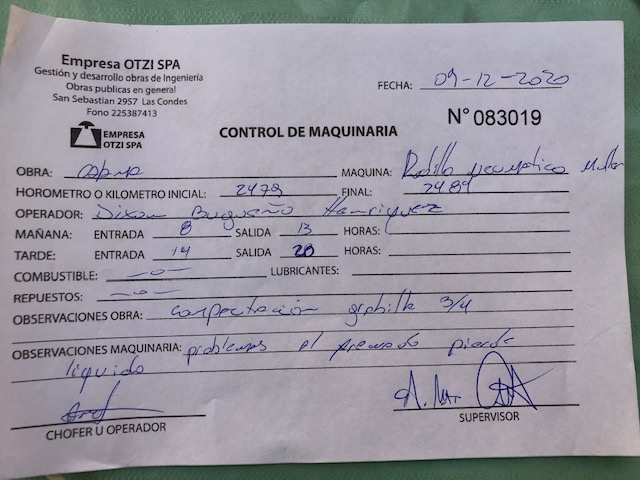 Empresa OTZI SPA
Gestión y desarrollo obras de Ingeniería
Obras publicas en general
San Sebastian 2957 Las Condes
Fono 225387413
EMPRESA
OTZI SPA
FECHA: 09-12-2020
CONTROL DE MAQUINARIA
N° 083019
OBRA: MAQUINA: Rodillo Neumático
HOROMETRO O KILOMETRO INICIAL: 2479 FINAL: 2484
OPERADOR: Dixon Bugueño Henriquez
MAÑANA: ENTRADA 8 SALIDA 13 HORAS:
TARDE: ENTRADA 14 SALIDA 20 HORAS:
COMBUSTIBLE: -0- LUBRICANTES:
REPUESTOS: -0-
OBSERVACIONES OBRA: compactación gravilla 3/4
OBSERVACIONES MAQUINARIA: problemas el pierde
liquido
CHOFER U OPERADOR
SUPERVISOR